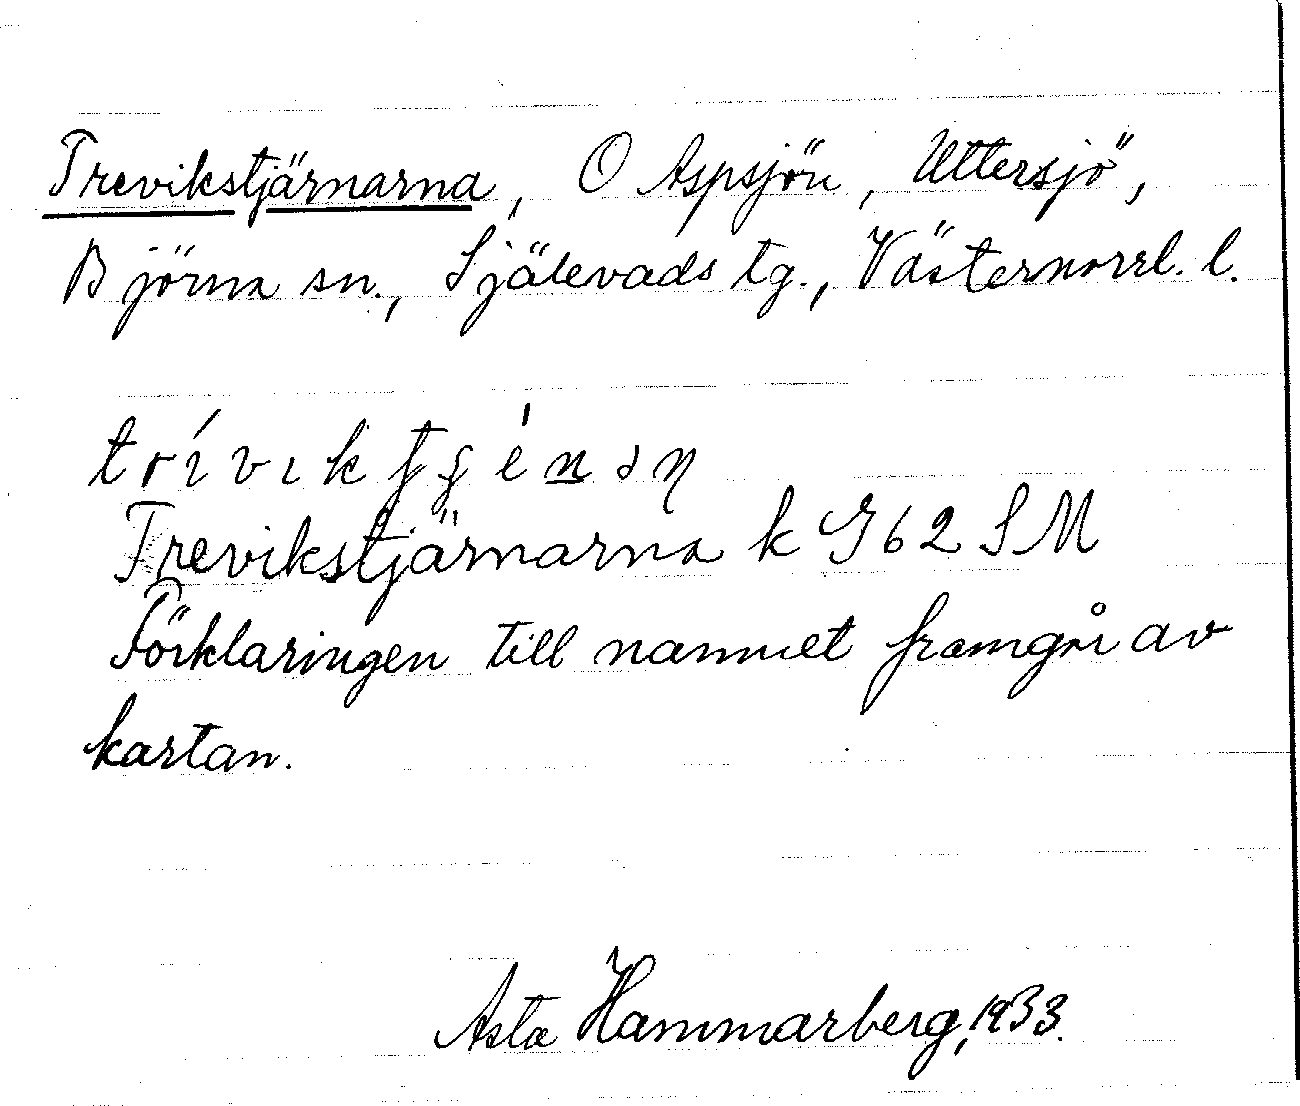 Trevikstjärnarna, O Aspsjön, Uttersjö,
Björna sn., Själevads tg., Västernorrl. l.
Trevikstjärnarna k G62 SM
Förklaringen till namnet framgår av
kartan.
Asta Hammarberg, 1933.